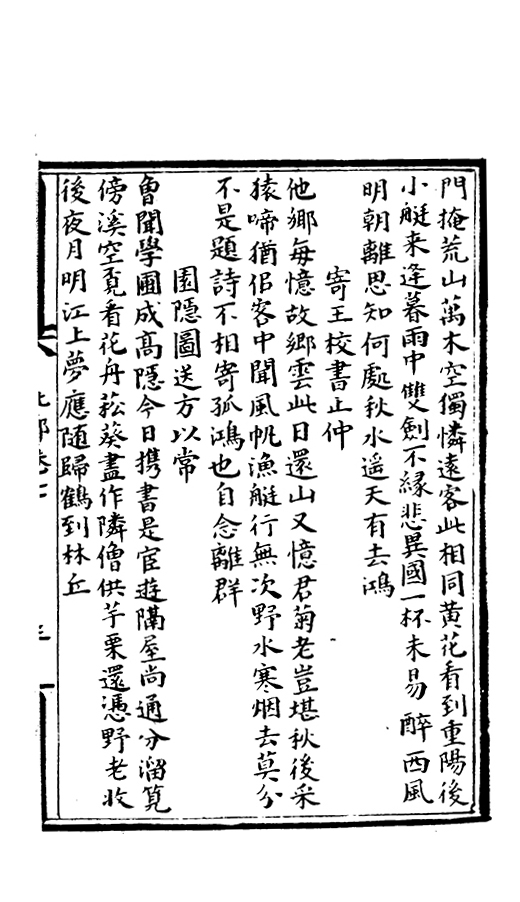 門掩荒山萬木空獨憐遠客此相同黄花看到重陽後
小艇来逢暮雨中雙劍不縁悲異國一杯未易醉西風
明朝離思知何處秋水遥天有去鴻
寄王校書止仲
他鄉每憶故鄉雲此日還山又憶君菊老豈堪秋後采
猿啼猶侣客中聞風帆漁艇行無次野水寒烟去莫分
不是題詩不相寄孤鴻也自念離群
園隱圖送方以常
曾聞學圃成髙隱今日携書是宦遊隔屋尚通分溜筧
傍溪空覔看花舟菘葵盡作隣僧供芋栗還憑野老收
後夜月明江上夢應随歸鶴到林丘